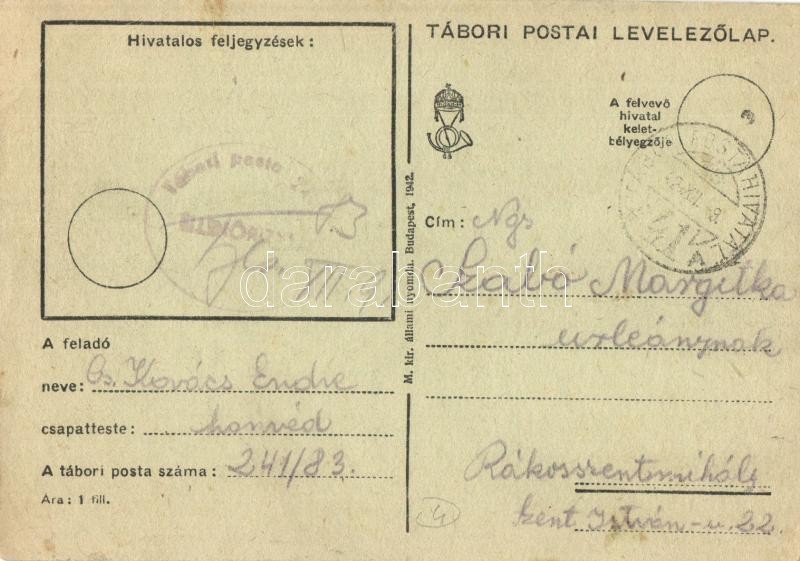 Hivatalos feljegyzések :
Tábori posta
TÁBORI POSTAI LEVELEZŐLAP.
A felvevő
hivatal
kelet-
bélyegzője
POSTAHIVATAL
Cím : Ngs
Szabó Margitka
urleánynak
Rákosszentmihály
Szent István-u. 22
M. kir. állami nyomda. Budapest, 1942.
A feladó
neve: Kovács Endre
csapatteste : honvéd
A tábori posta száma : 241/83.
Ára : 1 fill.
4
darabanth